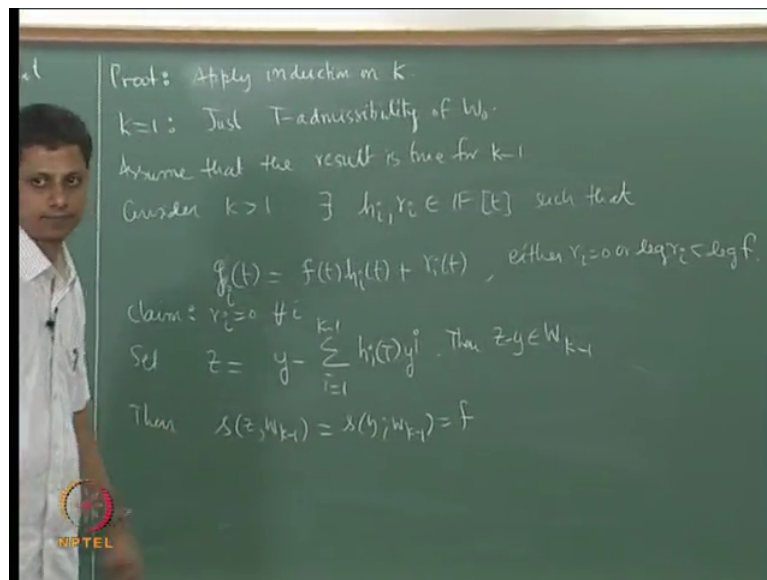 al
Proof: Apply induction on k.
k=1: Just T-admissibility of W₀.
Assume that the result is true for k-1
Consider k>1 ∃ hᵢ, rᵢ ∈ F[t] such that
gᵢ(t) = f(t)hᵢ(t) + rᵢ(t), either rᵢ=0 or deg rᵢ < deg f.
Claim: rᵢ=0 ∀i
Set z = y - ∑_{i=1}^{k-1} hᵢ(T)yⁱ. Then z-y ∈ W_{k-1}
Then s(z, W_{k-1}) = s(y; W_{k-1}) = f
NPTEL